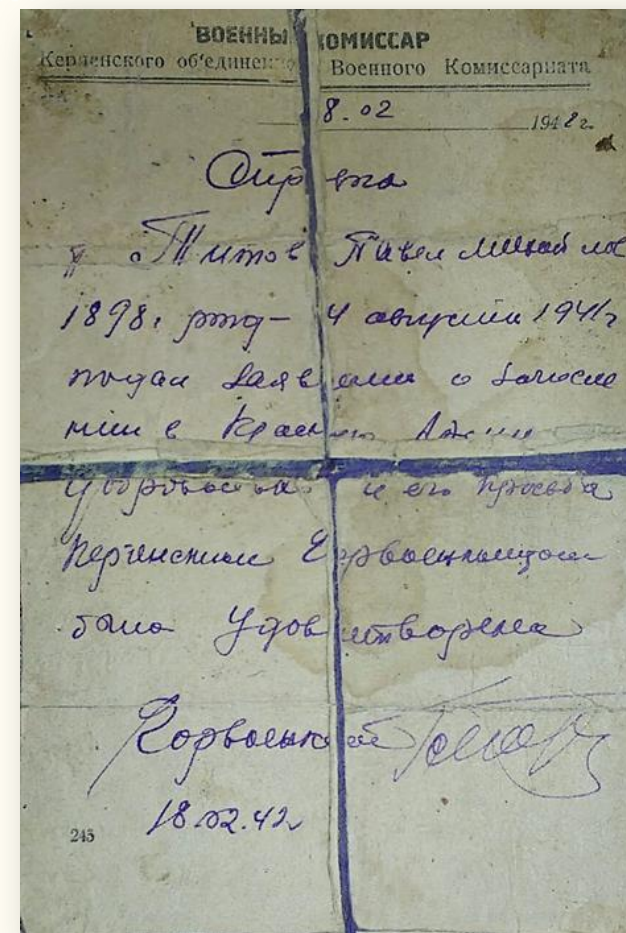 ВОЕННЫ КОМИССАР
Керченского об'единен Военного Комиссариата
8.02 1942 г.
Спр вка
Титов Павел Михайлов
1898. рожд- 4 августа 1941г
подал заяв ение о зачисле
нии в Красную Армию
добровольно и его просьба
Керченским Горвоенкоматом
была Удов етворена
Горвоенком
18.02.42г
245